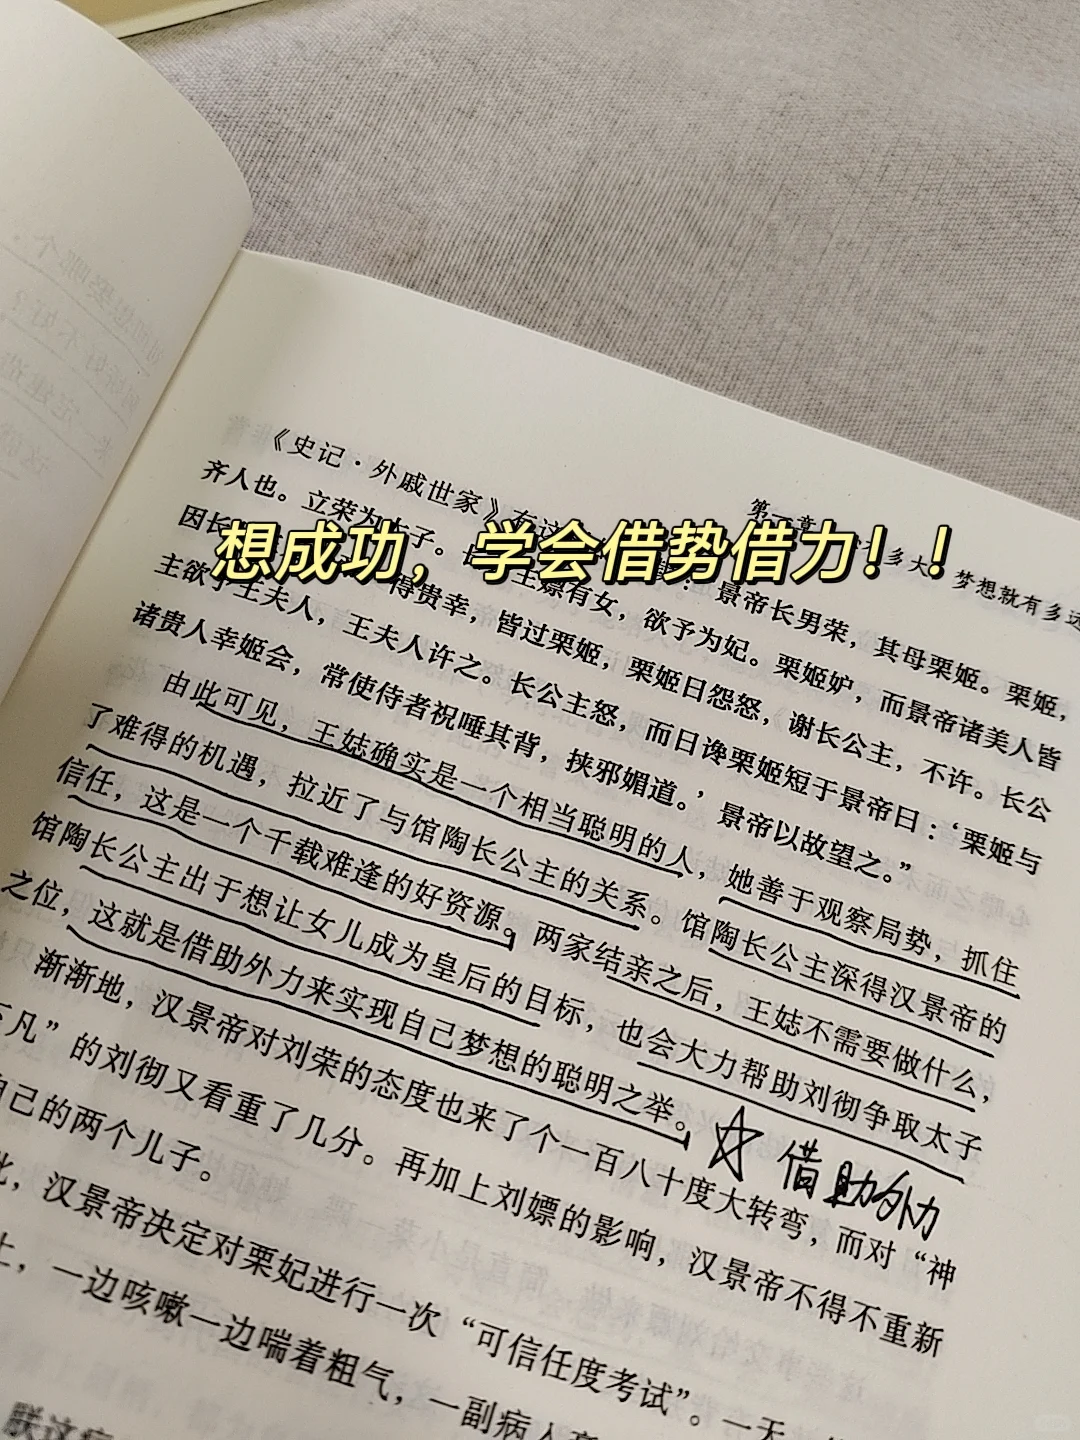 第一章 多大，梦想就有多远
想成功，学会借势借力！！
《史记·外戚世家》有这 景帝长男荣，其母栗姬。栗姬，
齐人也。立荣为太子。长公主嫖有女，欲予为妃。栗姬妒，而景帝诸美人皆
因长 得贵幸，皆过栗姬，栗姬日怨怒，谢长公主，不许。长公
主欲予王夫人，王夫人许之。长公主怒，而日谗栗姬短于景帝曰：‘栗姬与
诸贵人幸姬会，常使侍者祝唾其背，挟邪媚道。’景帝以故望之。”
由此可见，王娡确实是一个相当聪明的人，她善于观察局势，抓住
了难得的机遇，拉近了与馆陶长公主的关系。馆陶长公主深得汉景帝的
信任，这是一个千载难逢的好资源。两家结亲之后，王娡不需要做什么，
馆陶长公主出于想让女儿成为皇后的目标，也会大力帮助刘彻争取太子
之位，这就是借助外力来实现自己梦想的聪明之举。
☆ 借助外力
渐渐地，汉景帝对刘荣的态度也来了个一百八十度大转弯，而对“神
下凡”的刘彻又看重了几分。再加上刘嫖的影响，汉景帝不得不重新
自己的两个儿子。
此，汉景帝决定对栗妃进行一次“可信任度考试”。一天，
上，一边咳嗽一边喘着粗气，一副病人
朕这病